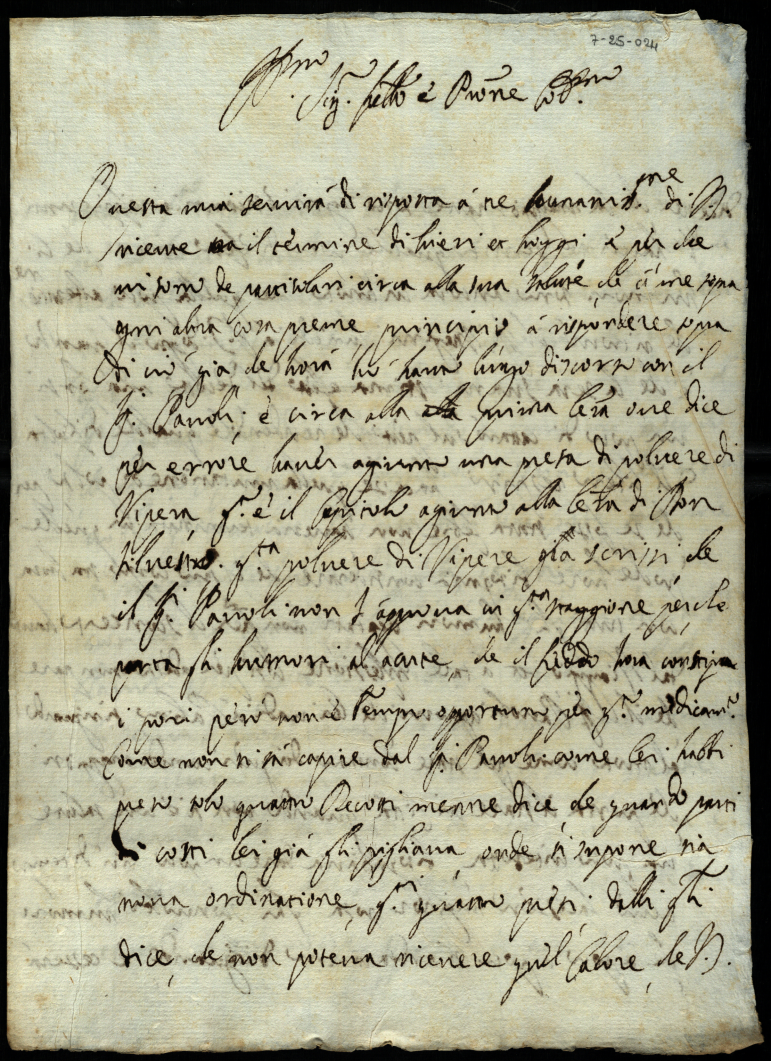 7-25-024
Ill.mo Sig.r fr̃llo e Prõne Coll.mo
Questa mia servirà di risposta à tre humaniss.me di V.S.
ricevute il termine di hieri et hoggi e per che
mi sono de particolari circa alla sua salute, che à me sopra
ogni altra cosa preme principio à rispondere sopra
di ciò già che horà hò hauto lungo discorso con il
S.r Panoli, e circa alla prima lr̃a oue dice
per errore hauer agiunto una presa di poluere di
Vipera, q.to è il Capitolo agiunto alla lr̃a di Don
Siluestro. q.ta poluere di Vipere gl'ia scrissi che
il S.r Panoli non l'approua in q.ta staggione perche
porta gli humori al acute, che il freddo hora constipa
i pori però non è tempo opportuno per q.to medicam.to
Come non si sà capire dal S.r Panoli come lei habbi
preso solo quattro Decotti mentre dice che quando parti
di costì lei già gli pigliaua, onde si supone sia
noua ordinatione, q.ti quattro presi. dalli q.li
dice, che non poteua riceuere quel Calore, che V.S.